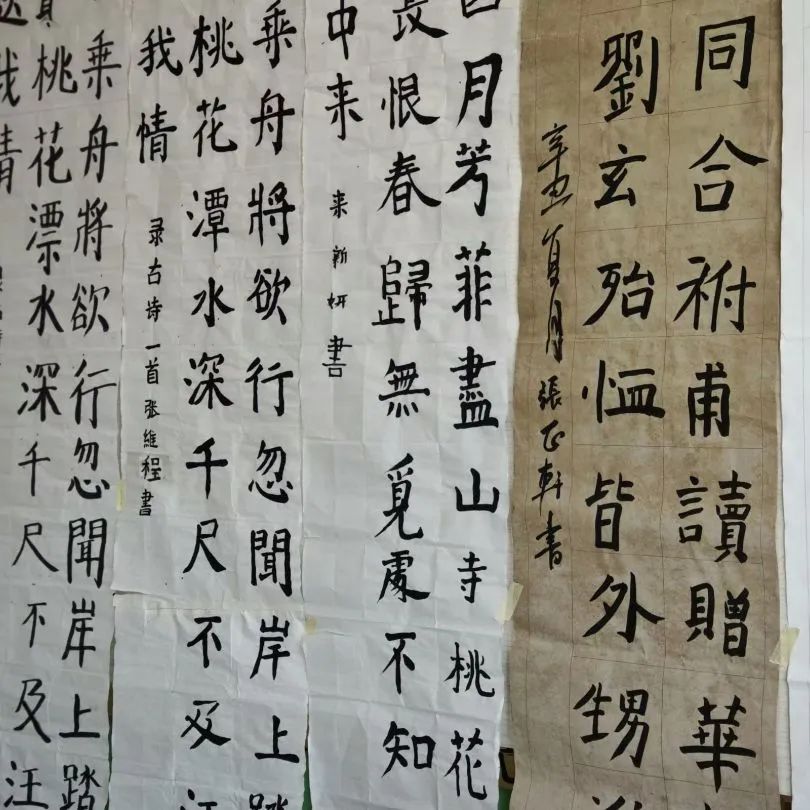 同合祔甫讀贈華
劉玄殆恤皆外甥
辛丑夏月張正軒書
月芳菲盡山寺桃花
長恨春歸無覓處不知
中来
来新妍書
乘舟將欲行忽聞岸上踏
桃花潭水深千尺不及汪
我情
录古诗一首張維程書
乘舟將欲行忽聞岸上踏
桃花漂水深千尺不及汪
我情